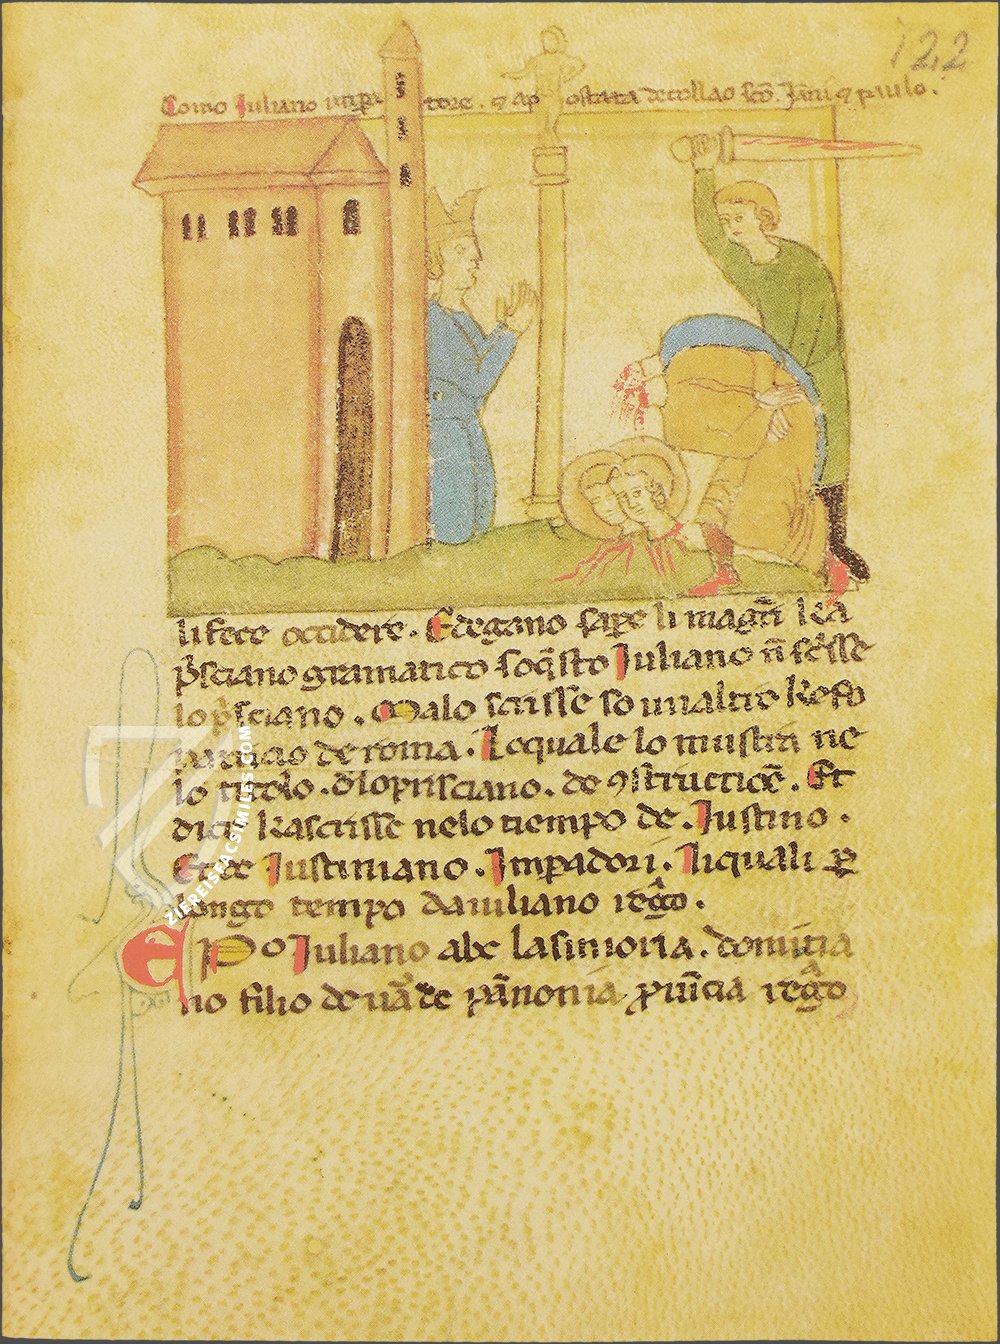 122
Como Iuliano impatore. ⁊ apostata decollao sco. Ianni ⁊ paulo.
li fece occidere. Edegano sape li magri ka
p'sciano gramatico so q̄sto Iuliano n̄ scrisse
lo p'sciano. Malo scrisse so un altro ke fo
patricio de roma. Loquale lo mustra ne
lo titolo. dlo prisciano. de ꝯstructiōe. Et
dice ka scrisse nelo tiempo de. Iustino.
Et de Iustiniano. Impadori. Li quali ꝑ
longo tempo da iuliano regāo.
EPo Iuliano abe la simoria. domitia
no filio de uār de pānonia ꝓuīcia regāo
ZIEREIS FACSIMILES.COM